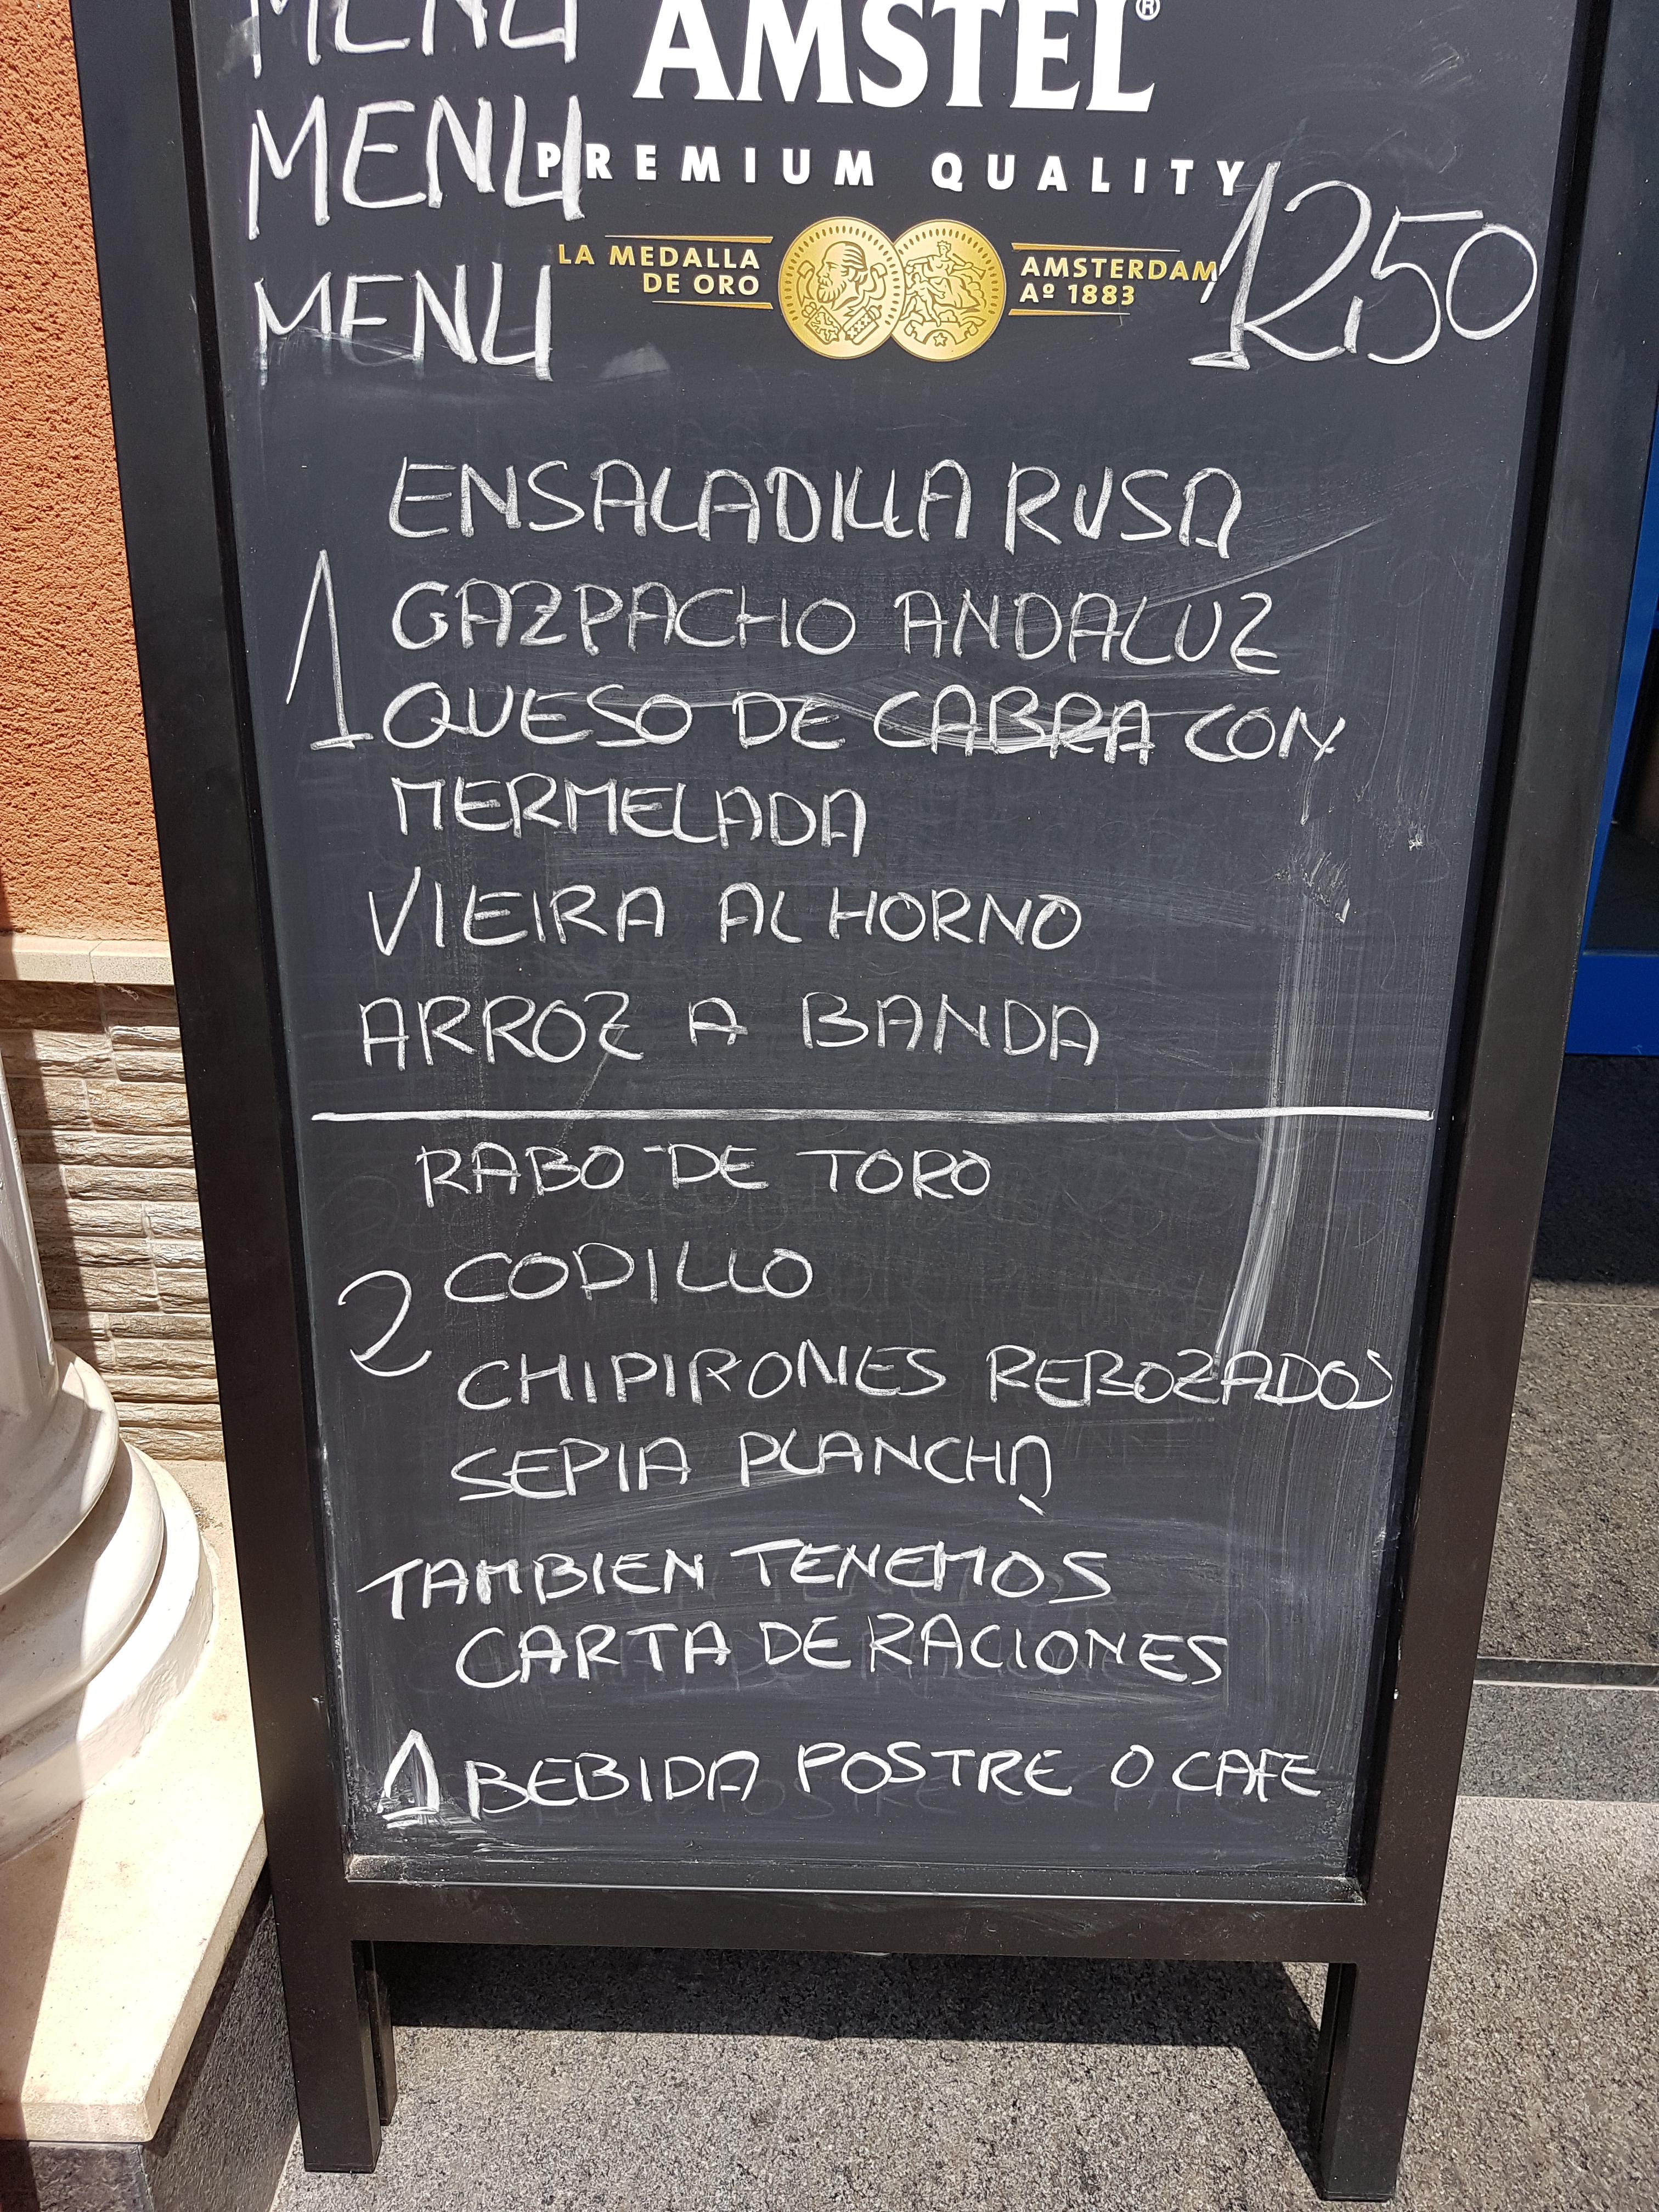 MENU
AMSTEL®
MENU
PREMIUM QUALITY
MENU
LA MEDALLA
DE ORO
AMSTERDAM
Aº 1883
12,50
ENSALADILLA RUSA
1 GAZPACHO ANDALUZ
QUESO DE CABRA CON
MERMELADA
VIEIRA AL HORNO
ARROZ A BANDA
RABO DE TORO
2 CODILLO
CHIPIRONES REBOZADOS
SEPIA PLANCHA
TAMBIEN TENEMOS
CARTA DE RACIONES
1 BEBIDA POSTRE O CAFE